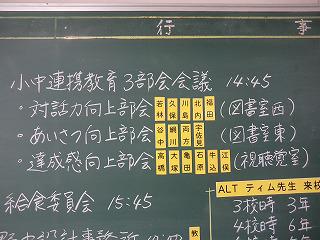 行 事
小中連携教育3部会会議 14:45
・対話力向上部会 若林 久保 川島 北内 福田 (図書室西)
・あいさつ向上部会 谷中 細川 両方 宇佐見 (図書室東)
・達成感向上部会 高橋 大塚 亀田 石原 牛込 江俣 (視聴覚室)
給食委員会 15:45
ALT ティム先生 来校
3校時 3年
4校時 6年